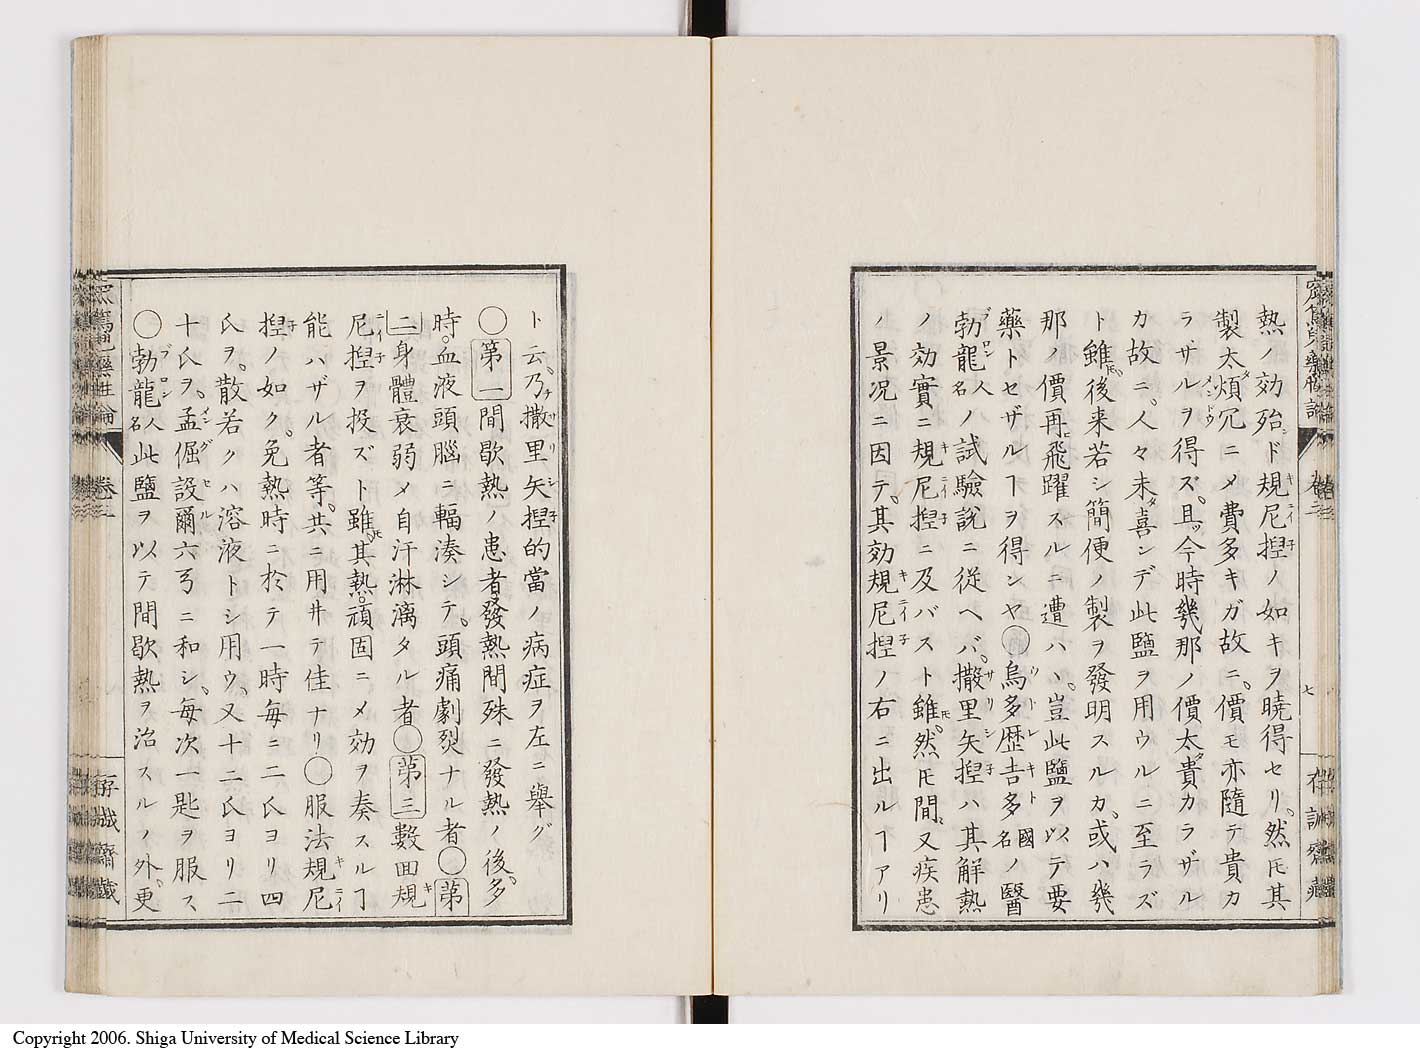 熱ノ効殆ド規尼捏ノ如キヲ曉得セリ。然𪜈其
製太煩冗ニメ費多キガ故ニ。價モ亦隨テ貴カ
ラザルヲ得ズ。且今時幾那ノ價太貴カラザル
カ故ニ。人々未喜ンデ此鹽ヲ用ウルニ至ラズ
ト雖後来若シ簡便ノ製ヲ發明スルカ。或ハ幾
那ノ價再飛躍スルニ遭ハヽ。豈此鹽ヲ以テ要
藥トセザルヿヲ得ンヤ○烏多歴吉多國名ノ醫
勃龍人名ノ試驗說ニ從ヘバ。撒里矢捏ハ其解熱
ノ効實ニ規尼捏ニ及バスト雖。然𪜈間又疾患
ノ景况ニ因テ。其効規尼捏ノ右ニ出ルヿアリ
七
存訓齋蔵
ト云乃撒里矢捏的當ノ病症ヲ左ニ舉グ
○第一間歇熱ノ患者發熱間殊ニ發熱ノ後。多
時。血液頭腦ニ輻湊シテ。頭痛劇烈ナル者○第
二身體衰弱メ自汗淋漓タル者○第三數回規
尼捏ヲ投ズト雖其熱。頑固ニメ効ヲ奏スルヿ
能ハザル者等。共ニ用井テ佳ナリ○服法規尼
捏ノ如ク。免熱時ニ於テ一時毎ニ二氏ヨリ四
氏ヲ。散若クハ溶液トシ用ウ。又十二氏ヨリ二
十氏ヲ。孟倔設爾六弓ニ和シ。毎次一匙ヲ服ス
○勃龍人名此鹽ヲ以テ間歇熱ヲ治スルノ外。更
卷三